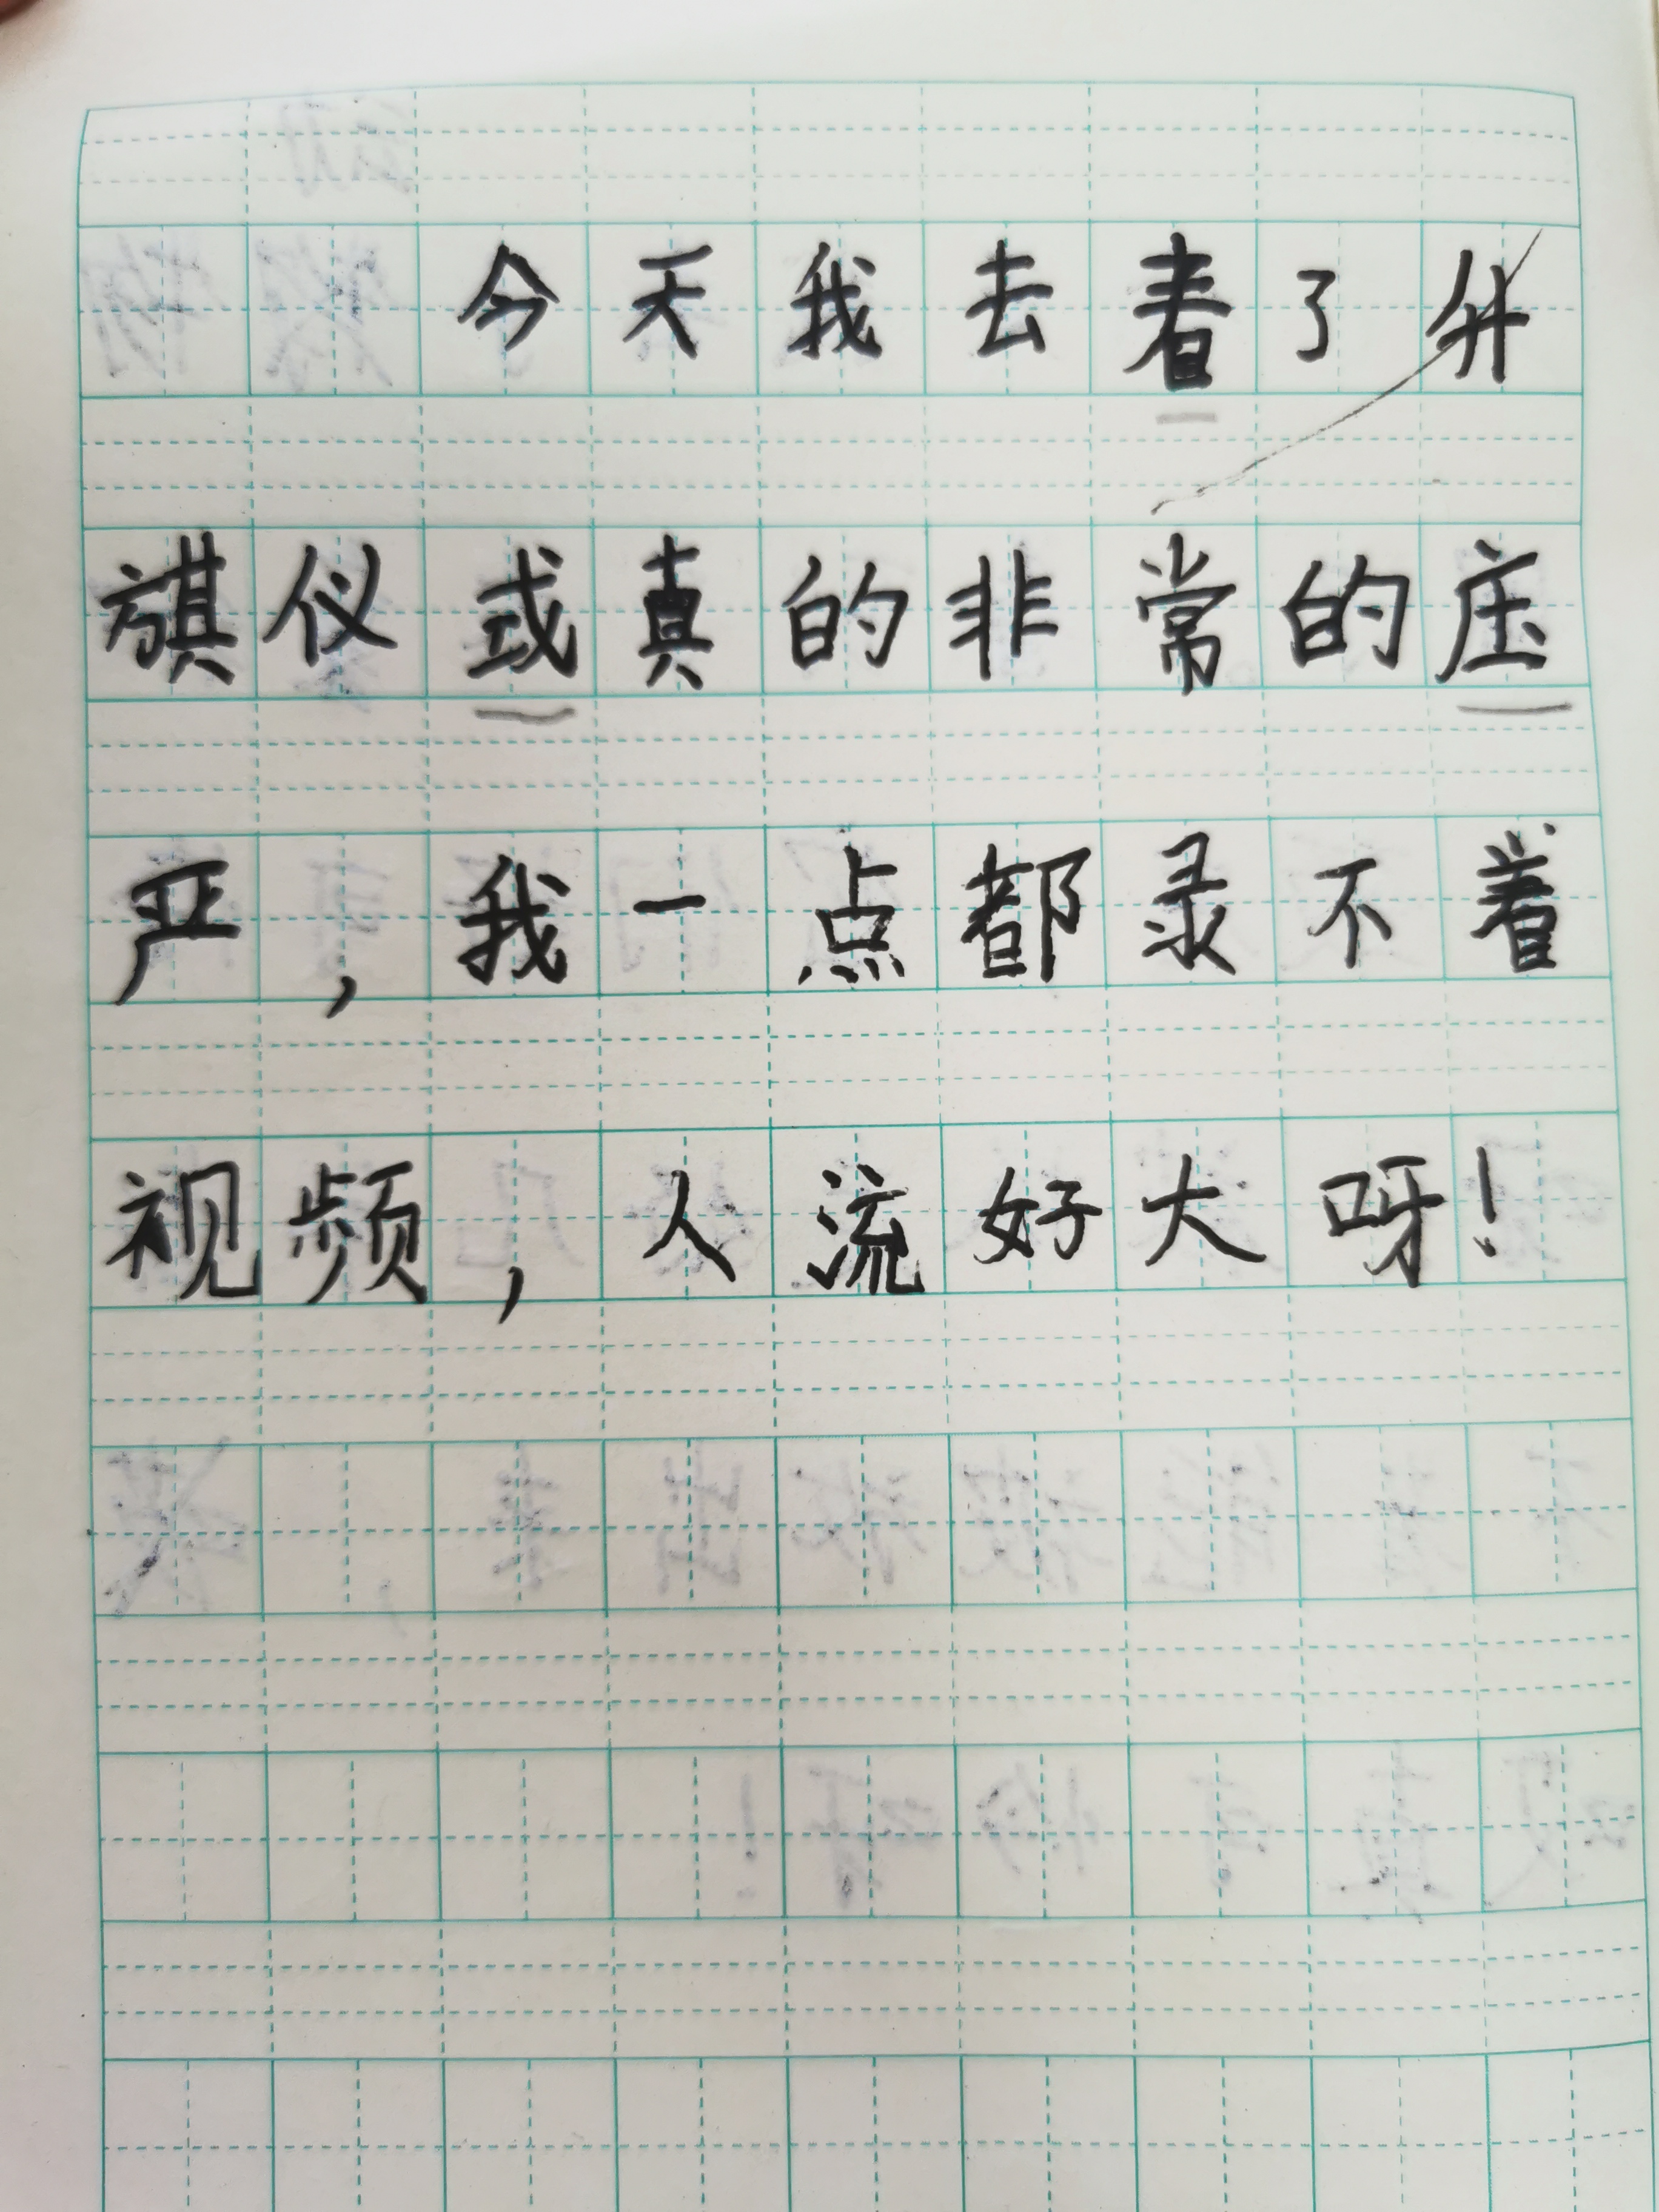 今天我去看了升
旗仪或真的非常的庄
严，我一点都录不着
视频，人流好大呀！